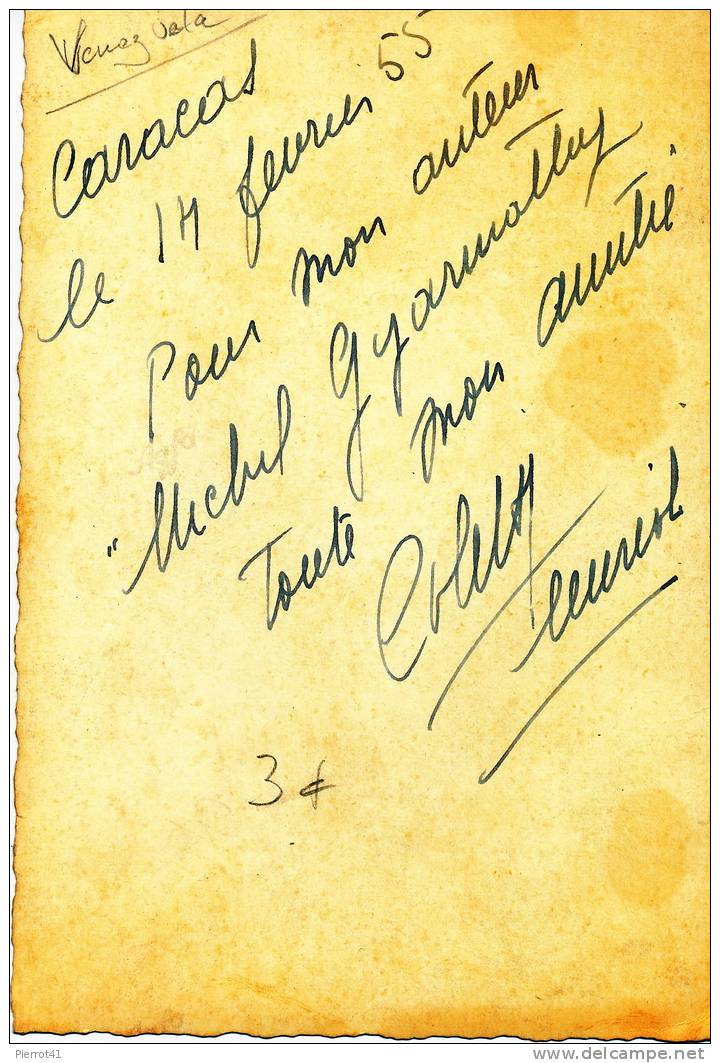 Venezuela
Caracas
le 14 fevrier 55
Pour mon auteur
"Michel Gyarmathy"
Toute mon amitié
Colette Fleuriot
3 €
Pierrot41
www.delcampe.net